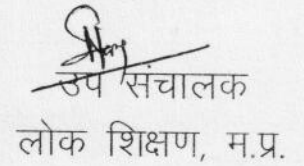 उप संचालक
लोक शिक्षण, म.प्र.